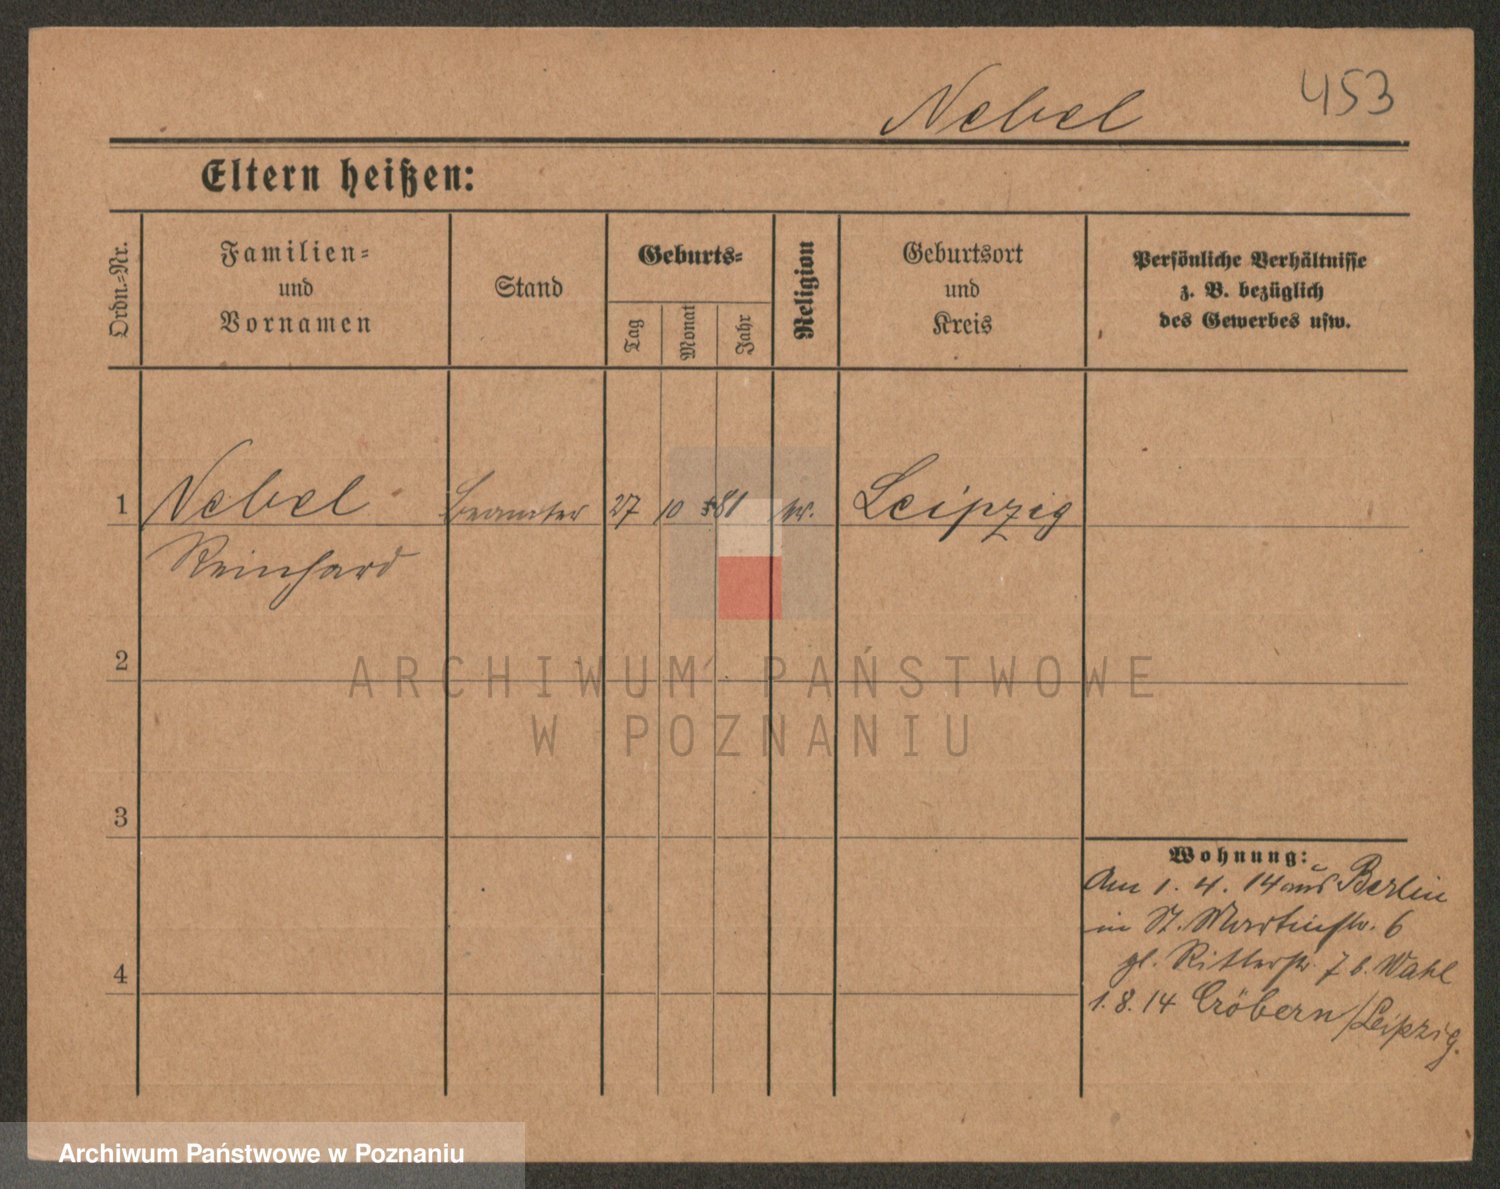 Nebel 453
Eltern heißen:
Ordn.-Nr.
Familien-
und
Vornamen
Stand
Geburts-
Tag
Monat
Jahr
Religion
Geburtsort
und
Kreis
Persönliche Verhältnisse
z. B. bezüglich
des Gewerbes usw.
1 Nebel Beamter 27 10 81 Leipzig
Reinhard
2
3
4
Wohnung:
Am 1. 4. 14 aus Berlin
in St. Martinstr. 6
gl. Ritterstr. 7 b. Wahl
1. 8. 14 Cröbern/Leipzig.
ARCHIWUM PAŃSTWOWE
W POZNANIU
Archiwum Państwowe w Poznaniu